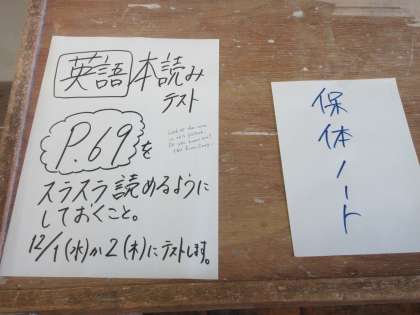 英語 本読み
テスト
P.69を
スラスラ読めるように
しておくこと。
12/1(水)か2(木)にテストします。
保体ノート